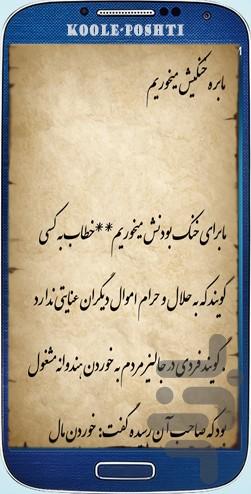 KOOLE-POSHTI
ما بره خنکیش میخوریم
ما برای خنک بودنش میخوریم**خطاب به کسی
گویند که به حلال و حرام اموال دیگران عنایتی ندارد
. گویند فردی در جالیز مردم به خوردن هندوانه مشغول
بود که صاحب آن رسیده گفت: خوردن مال